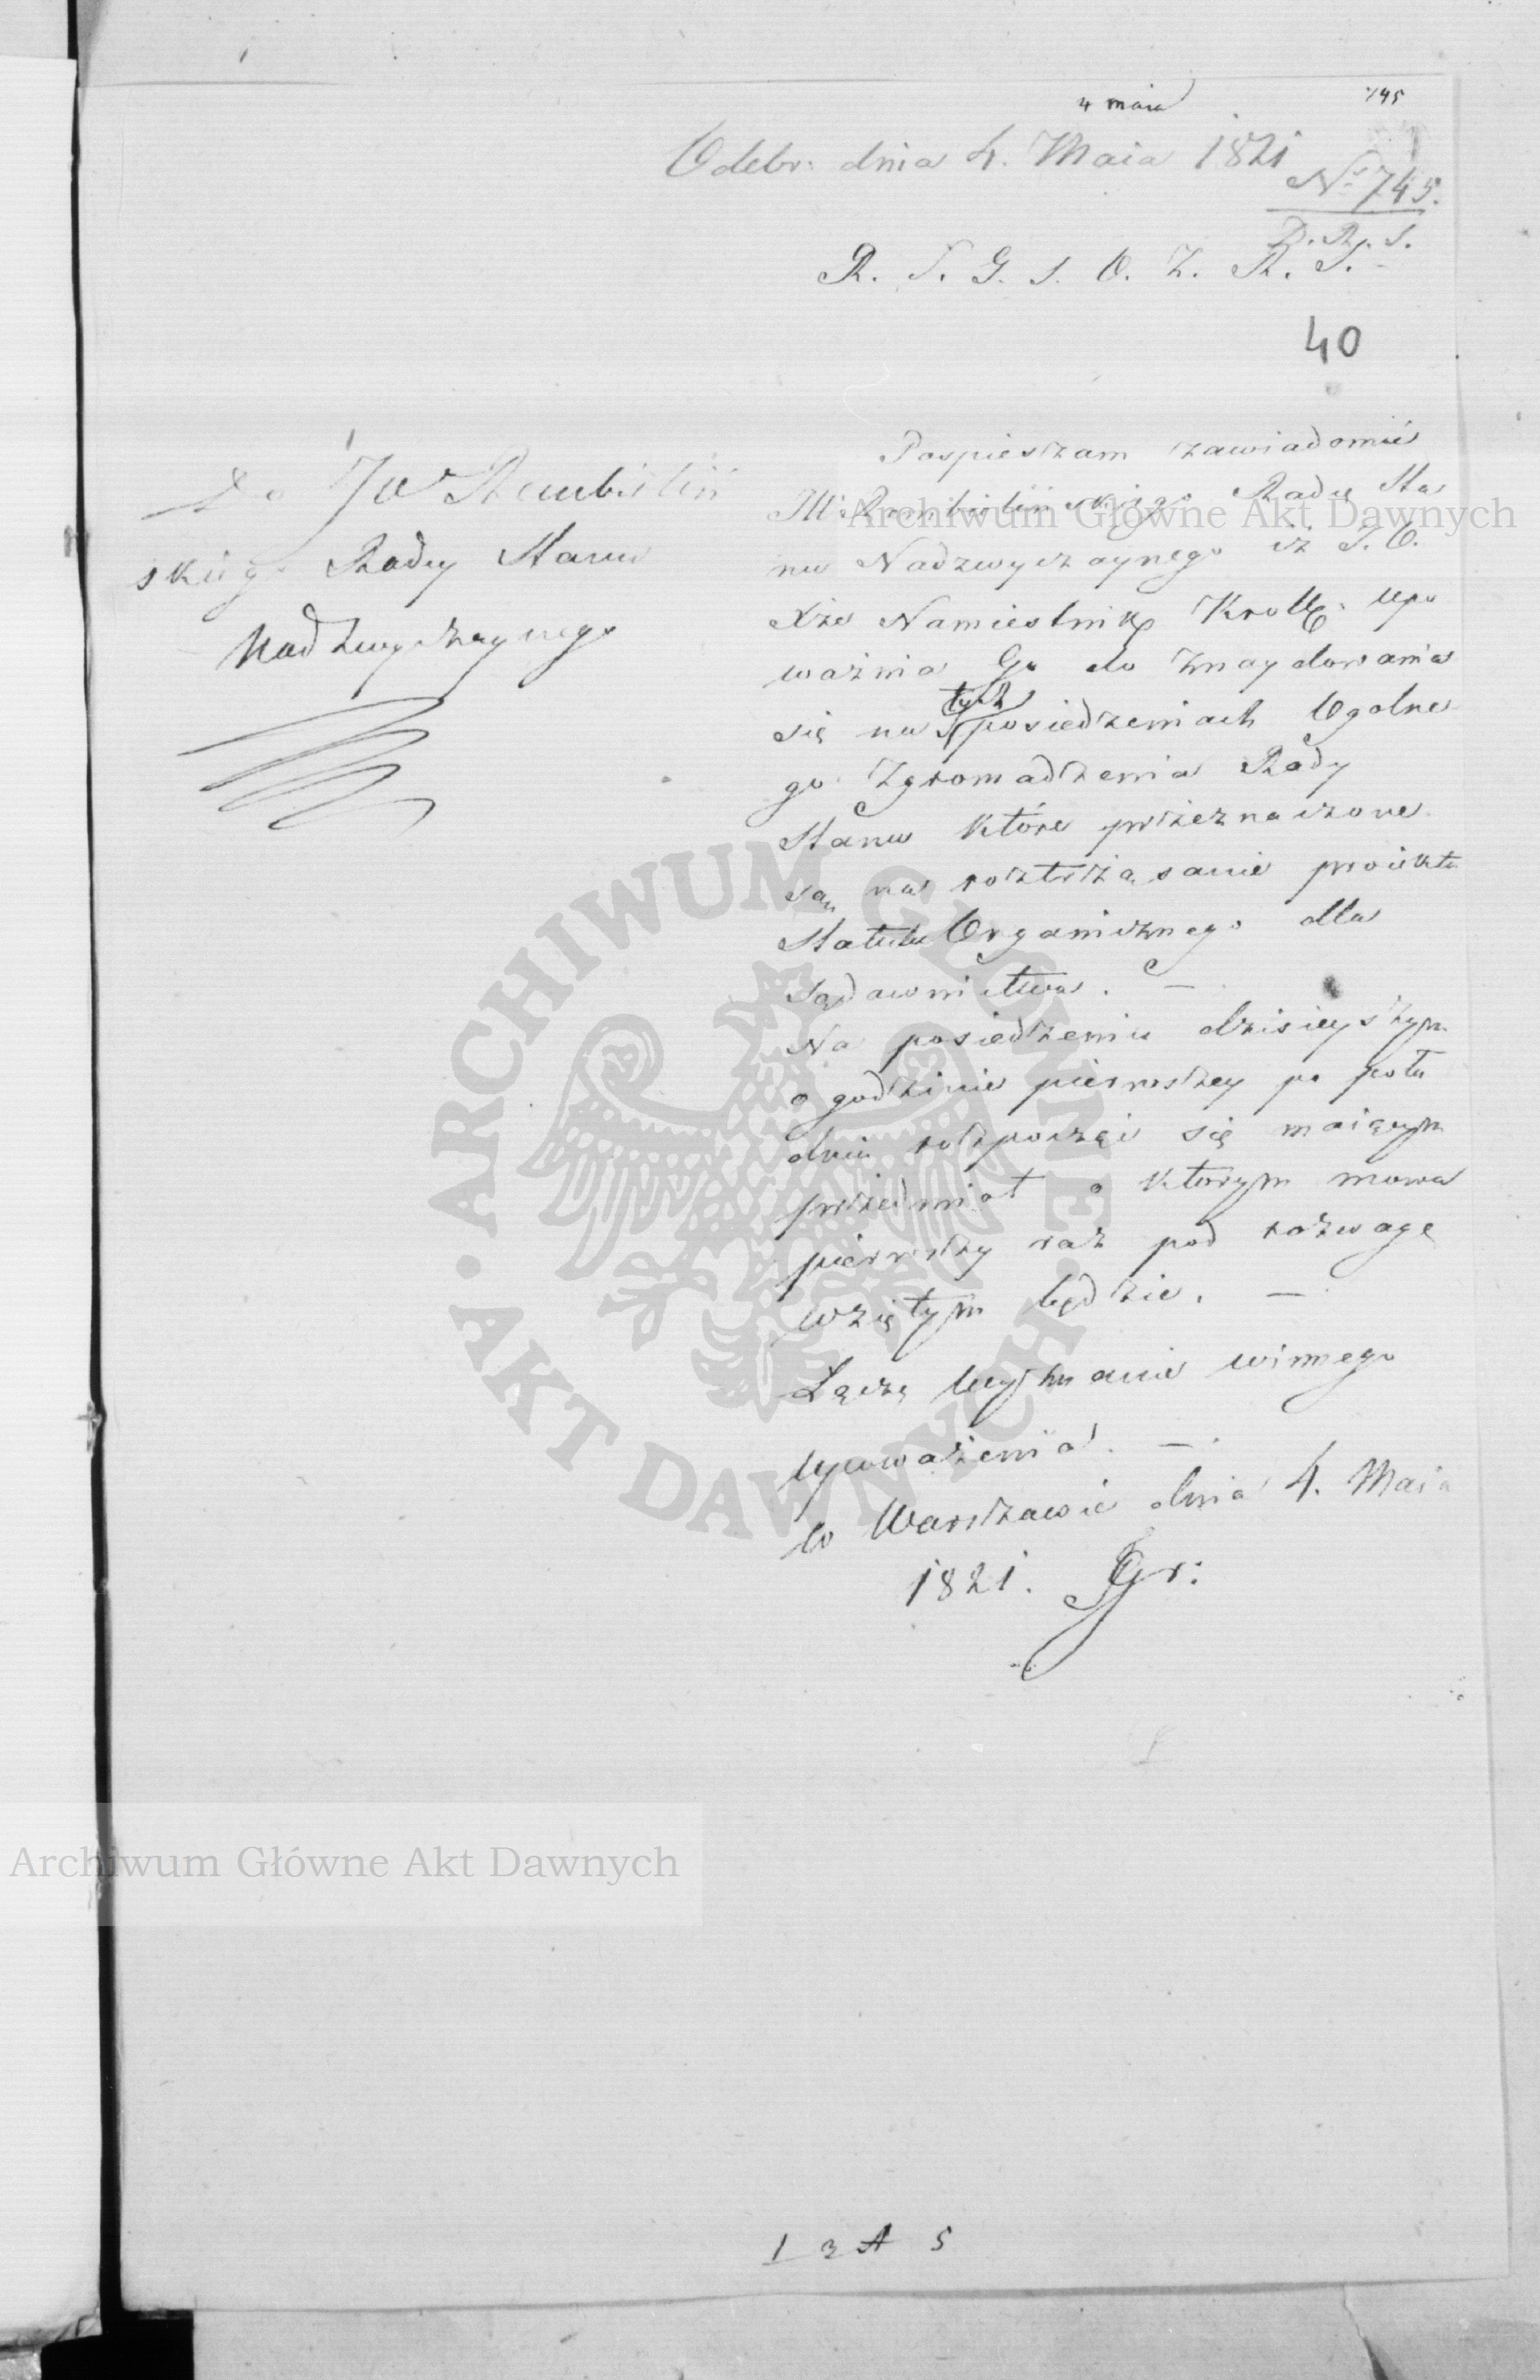 4 maia
745
Odebr: dnia 4. Maia 1821
No 745.
D. R. S.
R. S. G. S. O. Z. R. S.
40
Do JW Rembieliń
skiego Radcy Stanu
Nadzwyczaynego
Pospieszam zawiadomić
JW. Rembielińskiego Radcę Sta
nu Nadzwyczaynego iż J. O.
Xże Namiestnik Krolle: upo
ważnia Go do znaydowania
się na tych posiedzeniach Ogolne
go Zgromadzenia Rady
Stanu które przeznaczone
są na roztrząsanie proiektu
Statutu Organicznego dla
Sądownictwa. —
Na posiedzeniu dzisieyszym
o godzinie pierwszey po połu
dniu rozpocząć się maiącym
przedmiot o ktorym mowa
pierwszy raz pod rozwagę
wziętym będzie. —
Łączę wyznanie winnego
upoważenia. —
w Warszawie dnia 4. Maia
1821. Gr:
Archiwum Główne Akt Dawnych
ARCHIWUM GŁÓWNE
AKT DAWNYCH
Archiwum Główne Akt Dawnych
1 3 A 5